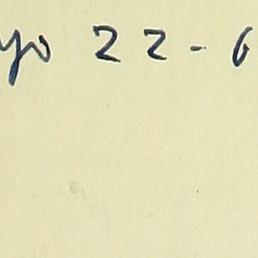 yo 22-6